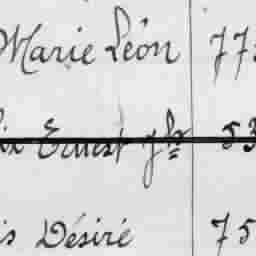 Marie Léon 77
Ernest jh 53
Désiré 75